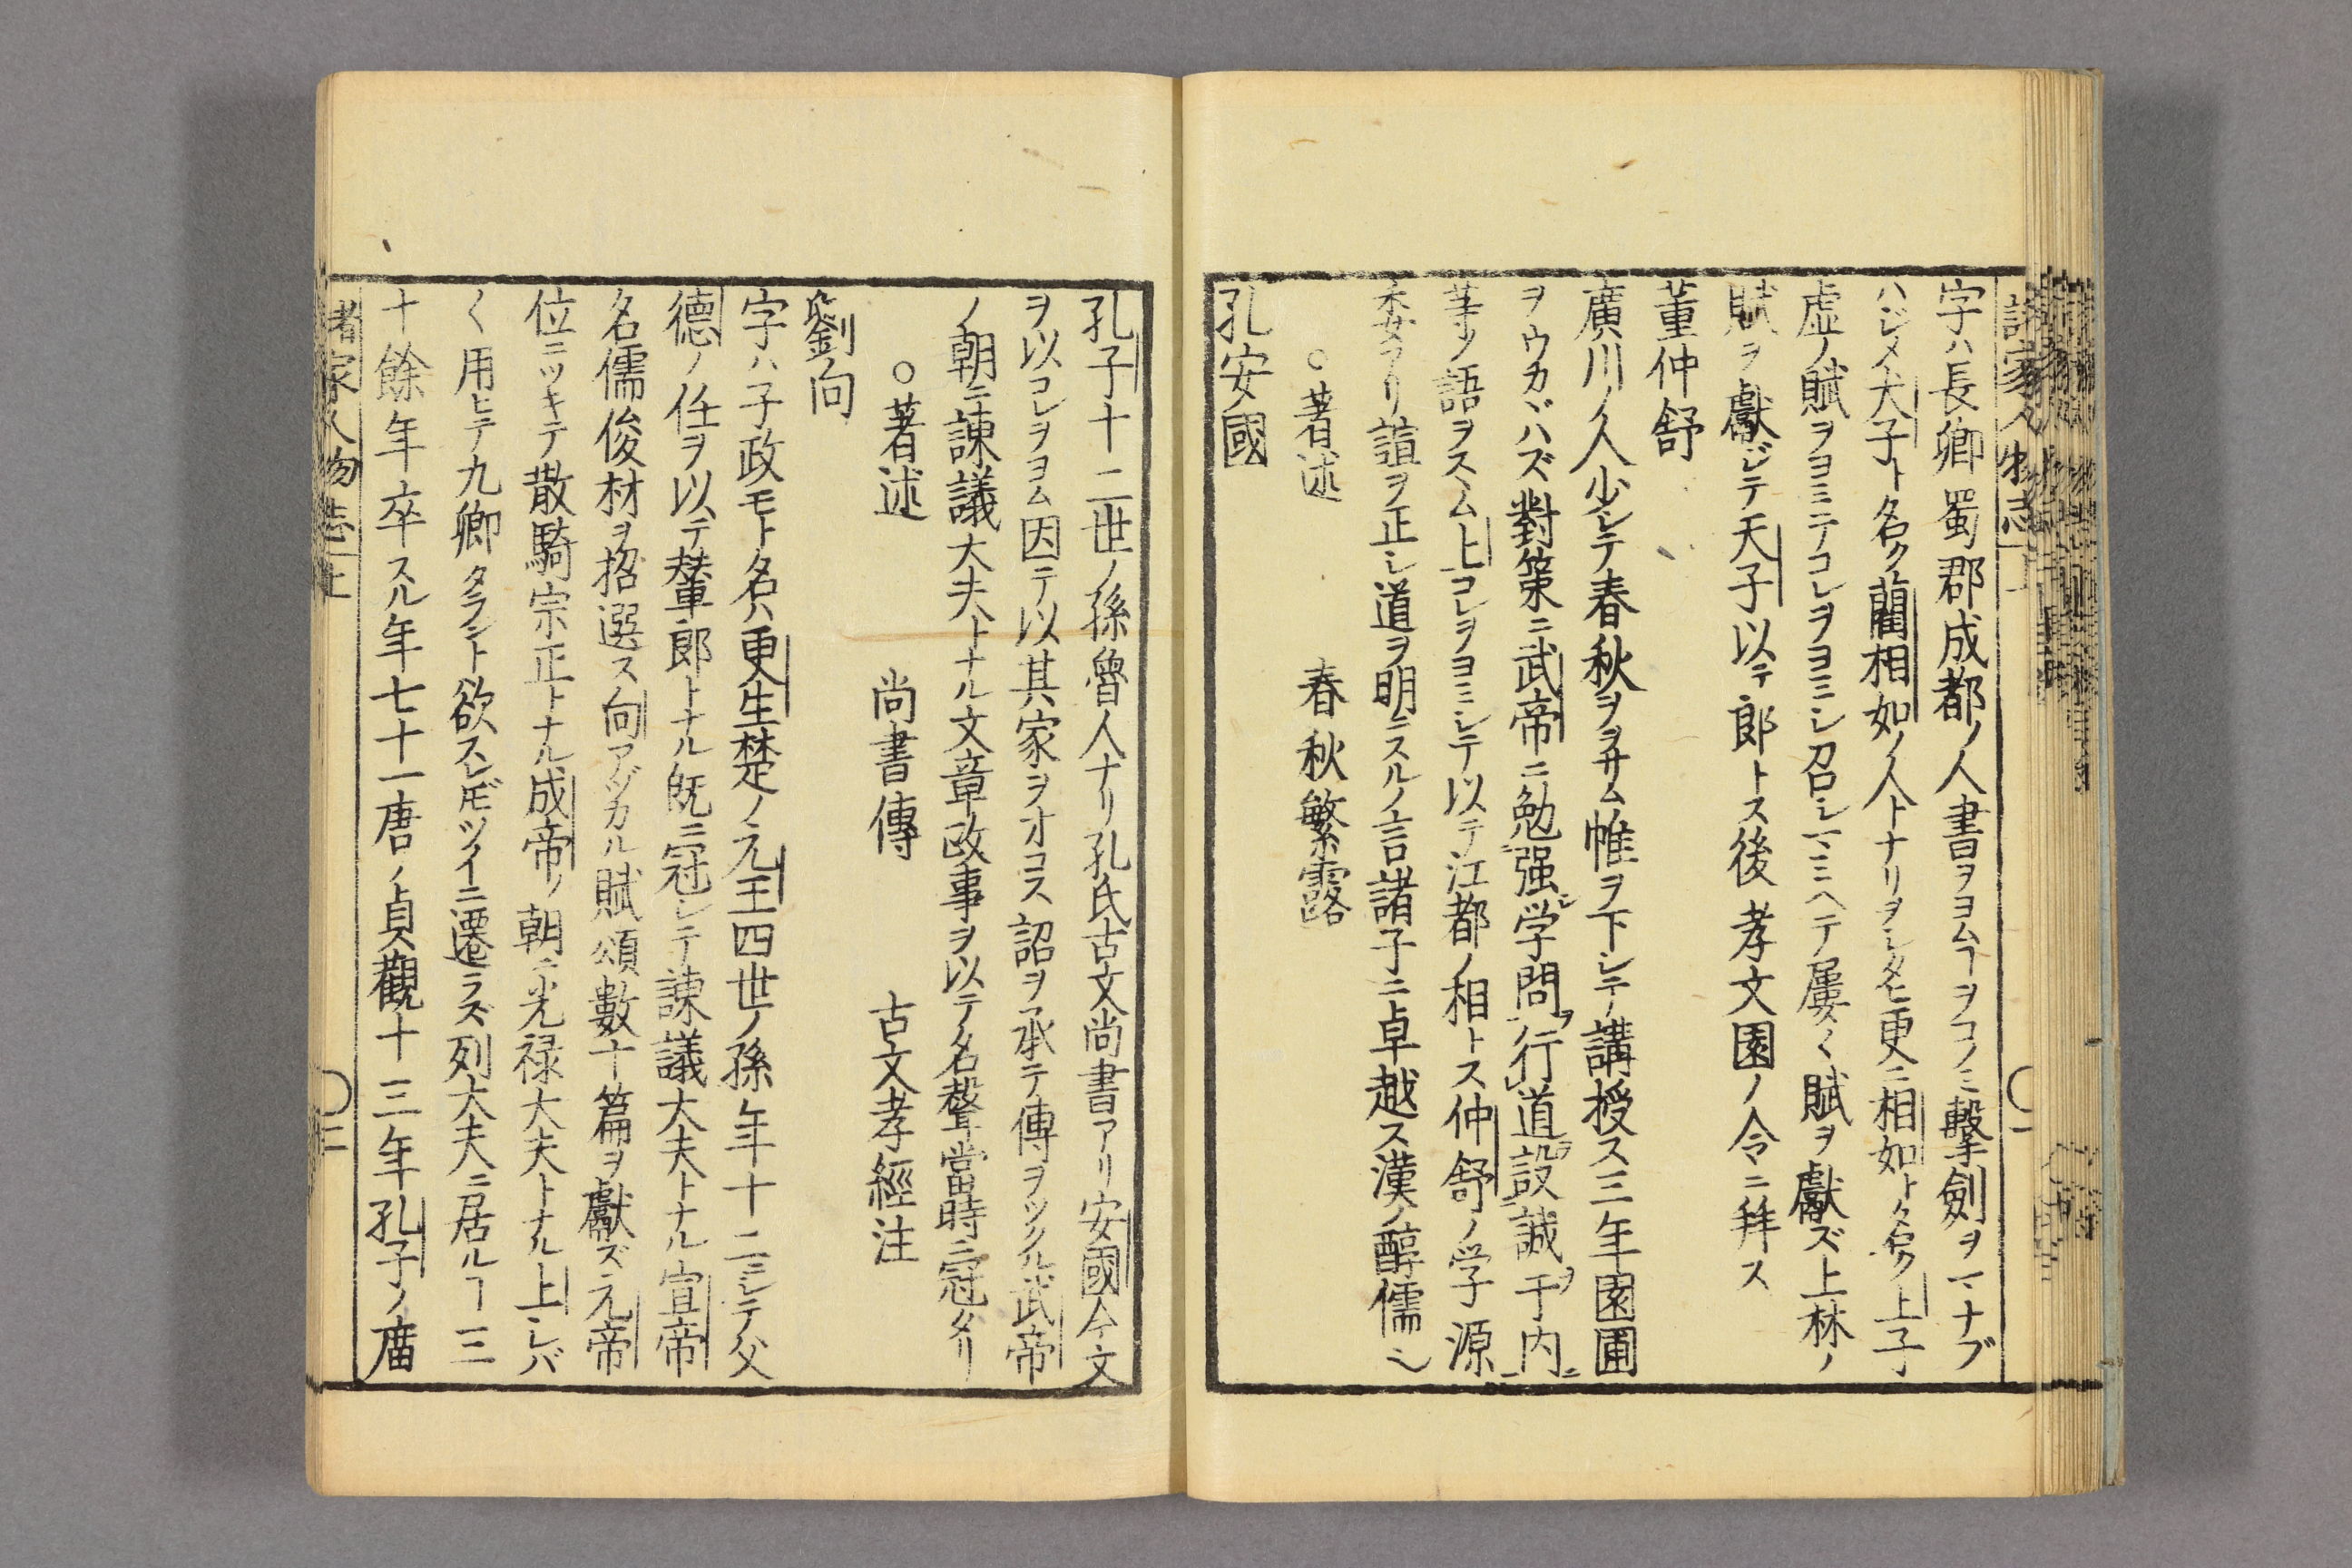 諸家人物志 上
字ハ長卿蜀郡成都ノ人書ヲヨムヿヲコノミ擊劍ヲマナブ
ハジメ犬子ト名ク藺相如ノ人トナリヲシタヒ更ニ相如トナツク上子
虚ノ賦ヲヨミテコレヲヨミシ召シマミヘテ屢〱賦ヲ獻ズ上林ノ
賦ヲ獻ジテ天子以テ郎トス後孝文園ノ令ニ拜ス
董仲舒
廣川ノ人少シテ春秋ヲヲサム帷ヲ下シテ講授ス三年園圃
ヲウカヾハズ對策ニ武帝ニ勉强学問行道設誠于内
等ノ語ヲスヽム上コレヲヨミシテ以テ江都ノ相トス仲舒ノ学源
委アリ誼ヲ正シ道ヲ明ニスルノ言諸子ニ卓越ス漢ノ醇儒也
○著述 春秋繁露
孔安國
孔子十二世ノ孫魯人ナリ孔氏古文尚書アリ安國今文
ヲ以コレヲヨム因テ以其家ヲオコス詔ヲ承テ傳ヲツクル武帝
ノ朝ニ諫議大夫トナル文章政事ヲ以テ名聲當時ニ冠タリ
○著述 尚書傳 古文孝經注
劉向
字ハ子政モト名ハ更生楚ノ元王四世ノ孫年十二ニシテ父
德ノ任ヲ以テ輦郎トナル既ニ冠シテ諫議大夫トナル宣帝
名儒俊材ヲ招選ス向アヅカル賦頌數十篇ヲ獻ズ元帝
位ニツキテ散騎宗正トナル成帝ノ朝ニ光禄大夫トナル上シバ
〱用ヒテ九卿タラント欲スレドモツイニ遷ラズ列大夫ニ居ルヿ三
十餘年卒スル年七十一唐ノ貞觀十三年孔子ノ庿
諸家人物志 上 〇二